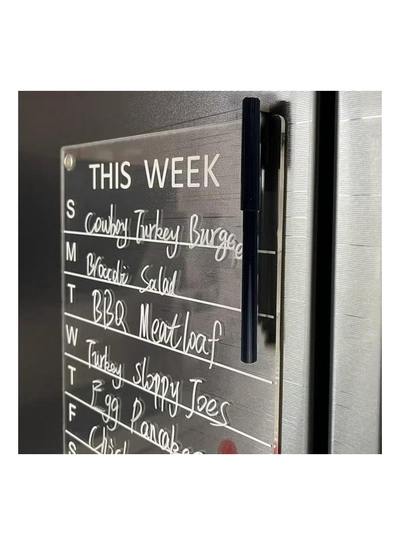 THIS WEEK
S Cowboy Turkey Burge
M Broccoli Salad
T BBQ Meatloaf
W Turkey Sloppy Joes
T Egg Pancakes
F
S